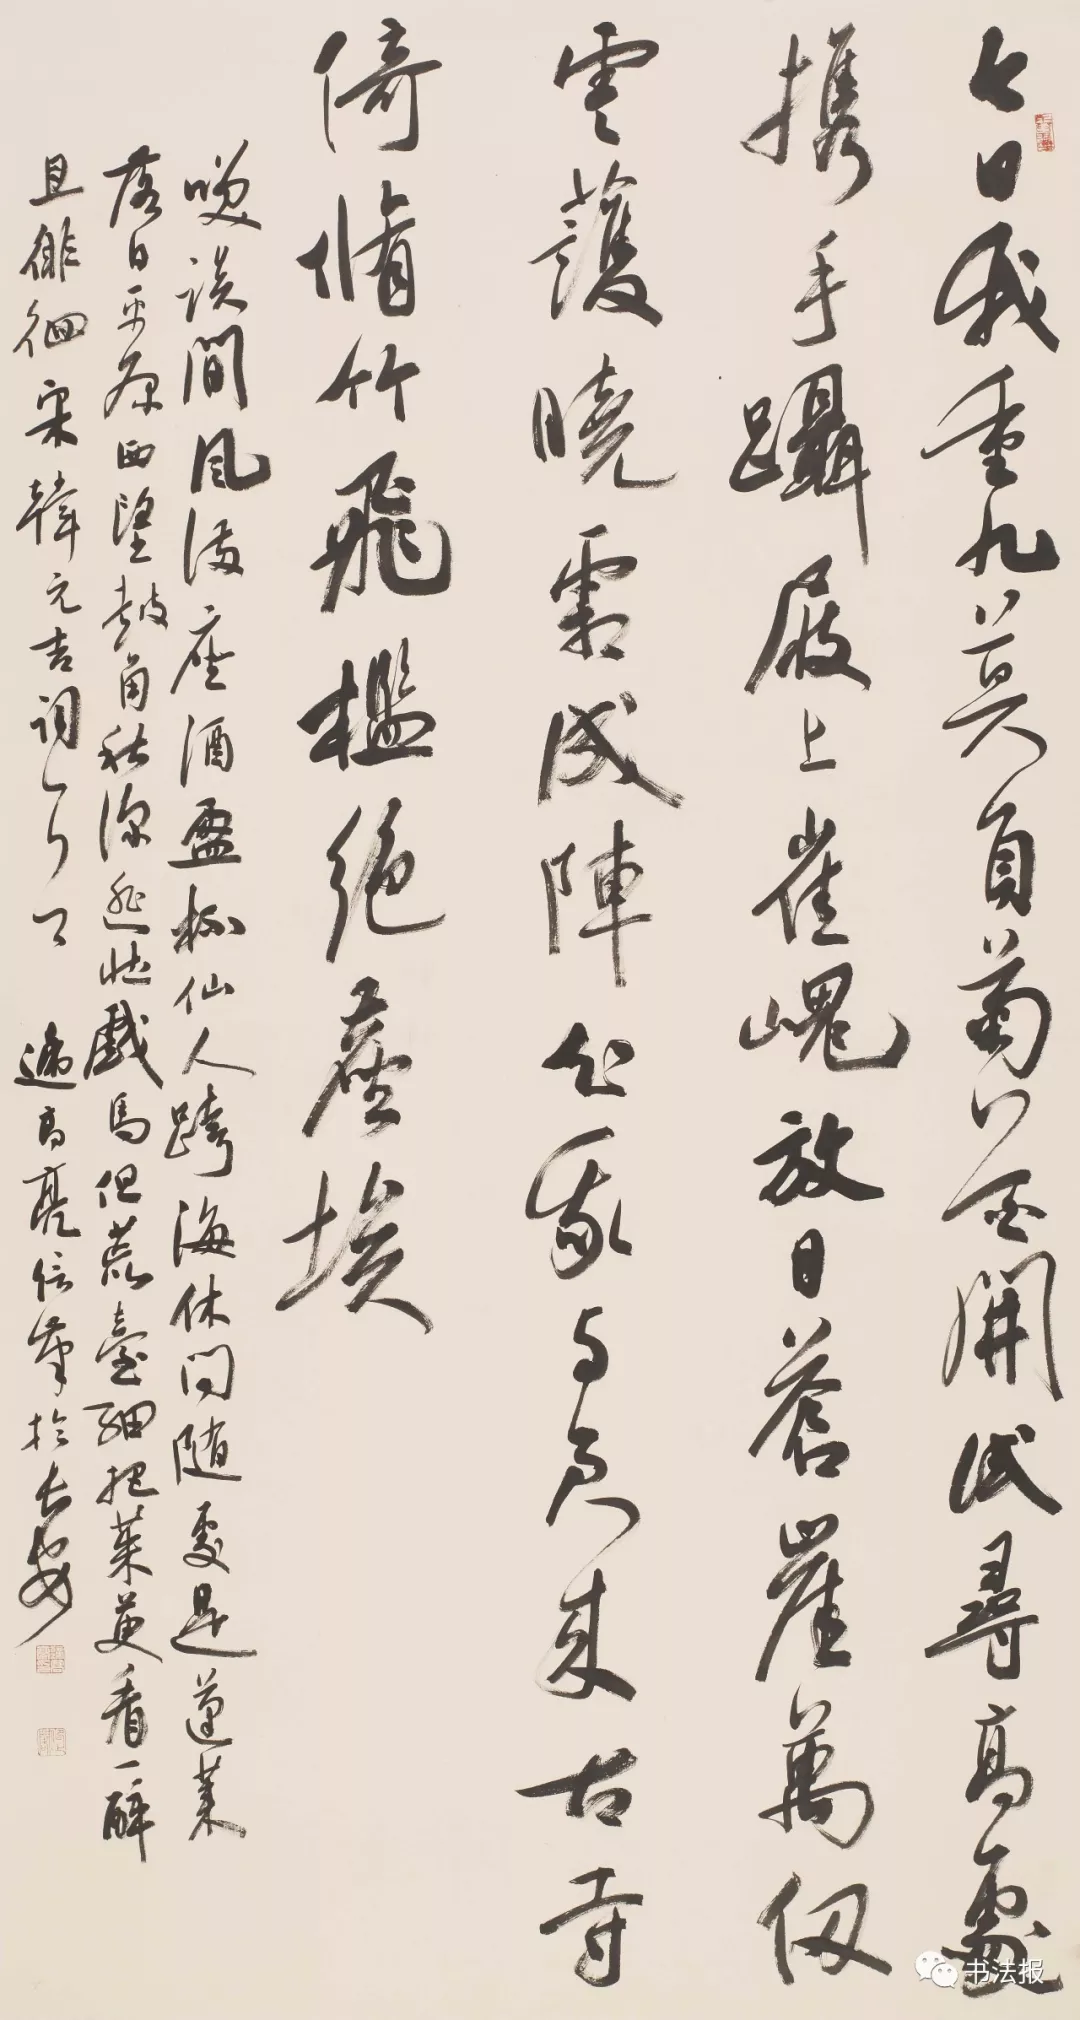 今日我重九莫負菊花開試尋高處
携手躡屐上崔嵬放日蒼崖萬仞
雲護曉霜成陣知我与君来古寺
倚脩竹飛檻絕塵埃
咲談間風滿座酒盈杯仙人跨海休問随處是蓬萊
落日平原西望鼓角秋深悲壯戲馬但荒臺細把茱萸看一醉
且徘徊宋韓元吉詞 遆高亮信筆於長安
书法报